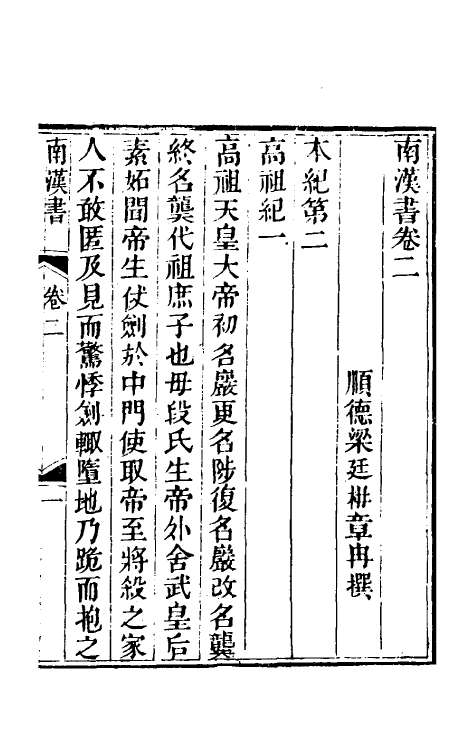 南漢書卷二
順德梁廷枏章冉撰
本紀第二
高祖紀一
高祖天皇大帝初名巖更名陟復名巖改名龑
終名龔代祖庶子也母段氏生帝外舍武皇后
素妬聞帝生仗劍於中門使取帝至將殺之家
人不敢匿及見而驚悸劍輙墮地乃跪而抱之
南漢書
卷二
一